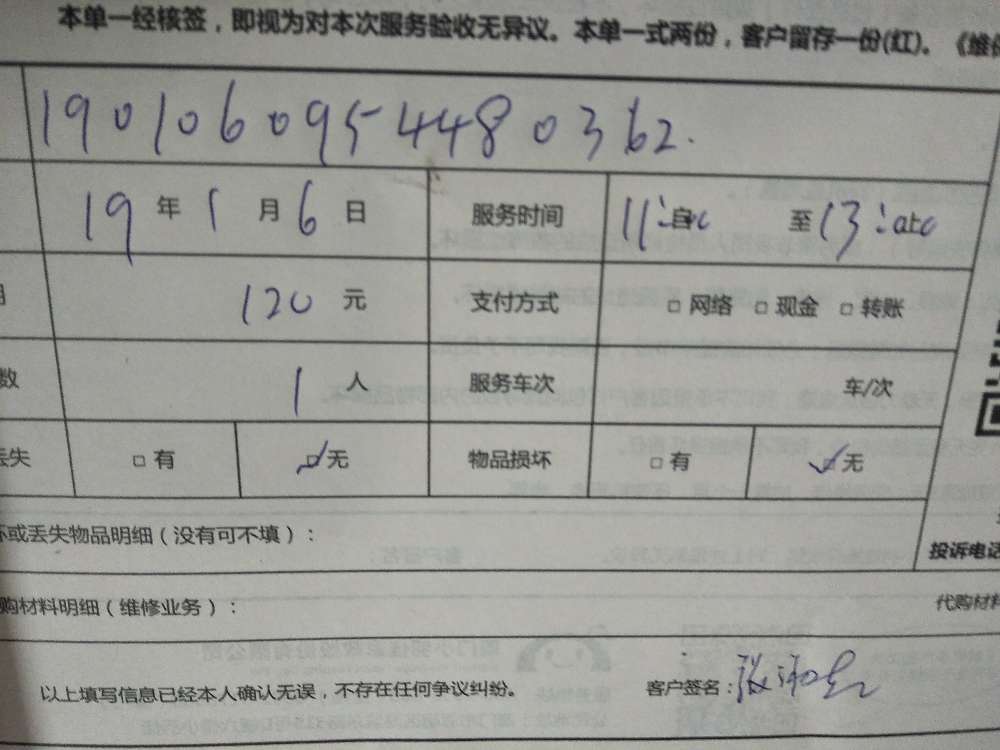 本单一经核签，即视为对本次服务验收无异议。本单一式两份，客户留存一份(红)。《维
190106095448 0362.
19 年 1 月 6 日 服务时间 11: 至 13:
120 元 支付方式 □ 网络 □ 现金 □ 转账
数 1 人 服务车次 车/次
丢失 □ 有 ☑无 物品损坏 □ 有 ☑无
坏或丢失物品明细（没有可不填）：
投诉电话
购材料明细（维修业务）：
代购材料
以上填写信息已经本人确认无误，不存在任何争议纠纷。 客户签名：张